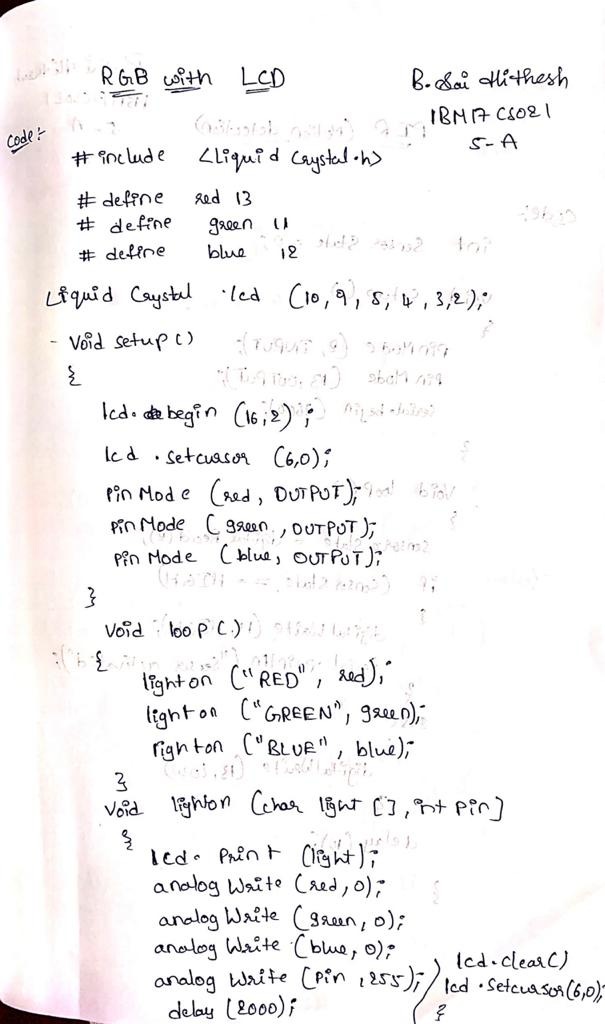 RGB with LCD
B. Sai Hithesh
1BM17CS021
5-A
Code:-
#include <Liquid Crystal.h>
# define red 13
# define green 11
# define blue 12
Liquid Crystal lcd (10,9,5,4,3,2);
Void setup()
{
lcd.begin (16,2);
lcd.setcursor (6,0);
pin Mode (red, OUTPUT);
pin Mode (green, OUTPUT);
pin Mode (blue, OUTPUT);
}
Void loop()
{
lighton ("RED", red);
lighton ("GREEN", green);
righton ("BLUE", blue);
}
Void lighton (char light [], int pin]
{
lcd. Print (light);
analog Write (red,0);
analog Write (green, 0);
analog Write (blue, 0);
analog Write (pin, 255);
delay (2000);
lcd.clear()
lcd.Setcursor(6,0);
}